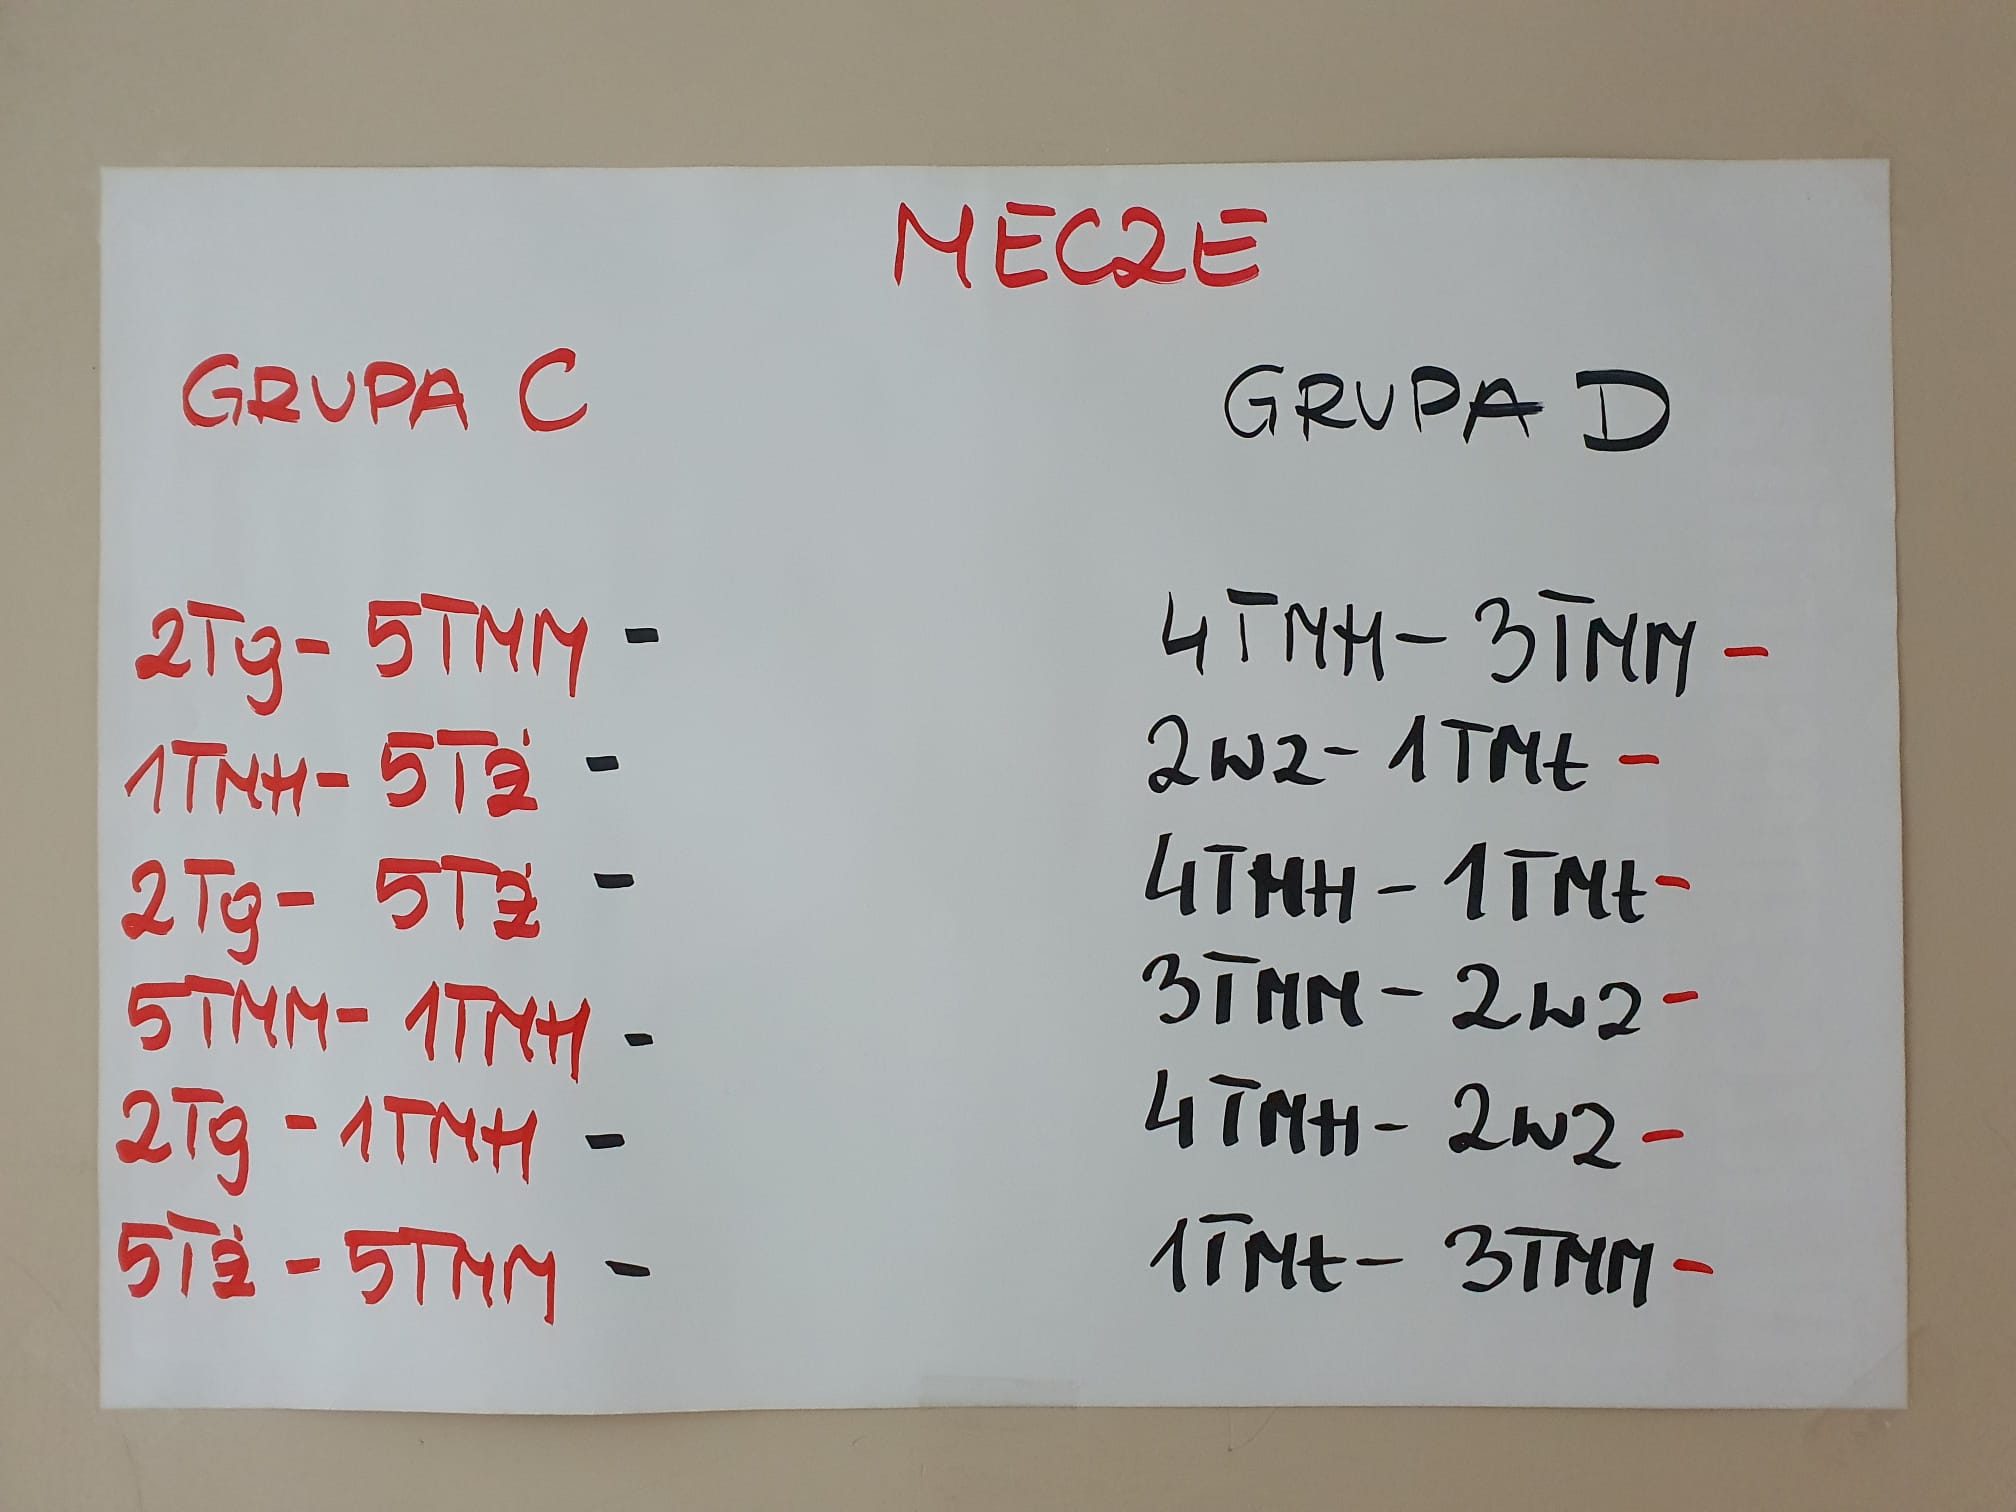 MECZE
GRUPA C
2Tg - 5TMM -
1TMH - 5TŻ -
2Tg - 5TŻ -
5TMM - 1TMH -
2Tg - 1TMH -
5TŻ - 5TMM -
GRUPA D
4TMH - 3TMM -
2wz - 1TMt -
4TMH - 1TMt -
3TMM - 2wz -
4TMH - 2wz -
1TMt - 3TMM -